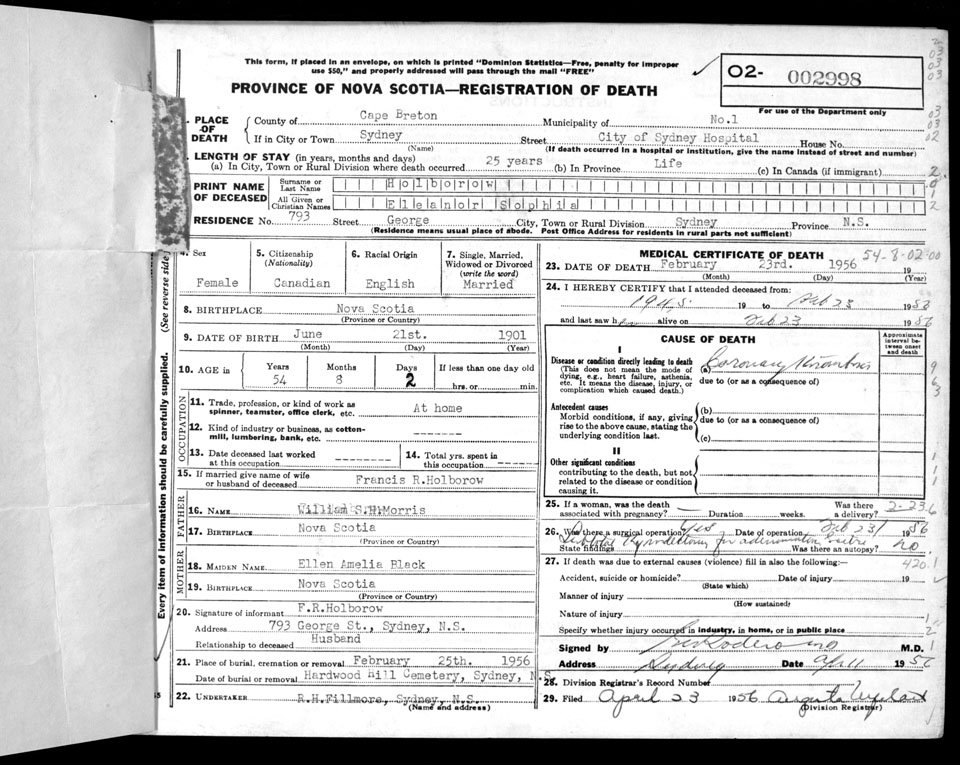 This form, if placed in an envelope, on which is printed "Dominion Statistics—Free, penalty for improper
use $50," and properly addressed will pass through the mail "FREE"
PROVINCE OF NOVA SCOTIA—REGISTRATION OF DEATH
O2- 002998
For use of the Department only
PLACE OF DEATH
County of Cape Breton Municipality of No.1
If in City or Town Sydney Street City of Sydney Hospital House No.
(Name) (If death occurred in a hospital or institution, give the name instead of street and number)
LENGTH OF STAY (in years, months and days)
(a) In City, Town or Rural Division where death occurred 25 years (b) In Province Life (c) In Canada (if immigrant)
PRINT NAME OF DECEASED
Surname or Last Name Holborow
All Given or Christian Names Eleanor Sophia
RESIDENCE No. 793 Street George City, Town or Rural Division Sydney Province N.S.
(Residence means usual place of abode. Post Office Address for residents in rural parts not sufficient)
(See reverse side)
Every item of information should be carefully supplied.
4. Sex
Female
5. Citizenship
(Nationality)
Canadian
6. Racial Origin
English
7. Single, Married,
Widowed or Divorced
(write the word)
Married
8. BIRTHPLACE Nova Scotia
(Province or Country)
9. DATE OF BIRTH June 21st. 1901
(Month) (Day) (Year)
10. AGE in
Years Months Days If less than one day old
54 8 2 hrs. or min.
OCCUPATION
11. Trade, profession, or kind of work as
spinner, teamster, office clerk, etc. At home
12. Kind of industry or business, as cotton-
mill, lumbering, bank, etc. -------
13. Date deceased last worked
at this occupation -------
14. Total yrs. spent in
this occupation -------
15. If married give name of wife
or husband of deceased Francis R.Holborow
FATHER
16. NAME William S.H.Morris
17. BIRTHPLACE Nova Scotia
(Province or Country)
MOTHER
18. MAIDEN NAME Ellen Amelia Black
19. BIRTHPLACE Nova Scotia
(Province or Country)
20. Signature of informant F.R.Holborow
Address 793 George St., Sydney, N.S.
Relationship to deceased Husband
21. Place of burial, cremation or removal February 25th. 1956
Date of burial or removal Hardwood Hill Cemetery, Sydney, N.S.
22. UNDERTAKER R.H.Fillmore, Sydney, N.S.
(Name and address)
MEDICAL CERTIFICATE OF DEATH
54-8-02-00
23. DATE OF DEATH February 23rd. 1956 19
(Month) (Day) (Year)
24. I HEREBY CERTIFY that I attended deceased from:
1945 19 to Feb 23 19
and last saw h alive on Feb 23 1956
CAUSE OF DEATH
Approximate
interval be-
tween onset
and death
I
Disease or condition directly leading to death
(This does not mean the mode of
dying, e.g., heart failure, asthenia,
etc. It means the disease, injury, or
complication which caused death.)
(a) Coronary thrombosis
due to (or as a consequence of)
Antecedent causes
Morbid conditions, if any, giving
rise to the above cause, stating the
underlying condition last.
(b)
due to (or as a consequence of)
(c)
II
Other significant conditions
contributing to the death, but not
related to the disease or condition
causing it.
25. If a woman, was the death
associated with pregnancy? Duration weeks. Was there
a delivery? 2-23-6
26. Was there a surgical operation? Yes Date of operation Feb 23/ 1956
Subtotal thyroidectomy for
State findings Was there an autopsy? no
27. If death was due to external causes (violence) fill in also the following:— 420.1
Accident, suicide or homicide? Date of injury 19
(State which)
Manner of injury
(How sustained)
Nature of injury
Specify whether injury occurred in industry, in home, or in public place
Signed by M.D.
Address Sydney Date April 1956
28. Division Registrar's Record Number
29. Filed April 23 1956 Augusta
(Division Registrar)